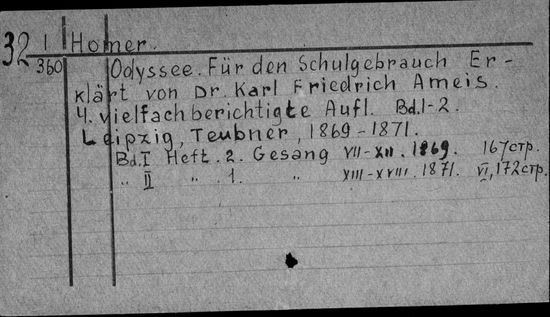 32 1 Homer.
360 Odyssee. Für den Schulgebrauch Er-
klärt von Dr. Karl Friedrich Ameis.
4. vielfach berichtigte Aufl. Bd. 1-2.
Leipzig, Teubner, 1869-1871.
Bd. I Heft. 2. Gesang VII-XII. 1869. 167 стр.
„ II „ 1. „ XIII-XVIII. 1871. VI, 172 стр.